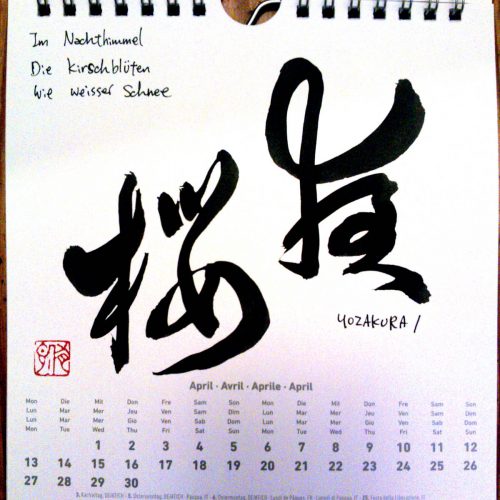 Im Nachthimmel
Die Kirschblüten
Wie weisser Schnee
夜桜
YOZAKURA /
April · Avril · Aprile · April
Mon Die Mit Don Fre Sam Son Mon Die Mit Don Fre Sam Son
Lun Mar Mer Jeu Ven Sam Dim Lun Mar Mer Jeu Ven Sam Dim
Lun Mar Mer Gio Ven Sab Dom Lun Mar Mer Gio Ven Sab Dom
Mon Tue Wed Thu Fri Sat Sun Mon Tue Wed Thu Fri Sat Sun
1 2 3 4 5 6 7 8 9 10 11 12
13 14 15 16 17 18 19 20 21 22 23 24 25 26
27 28 29 30